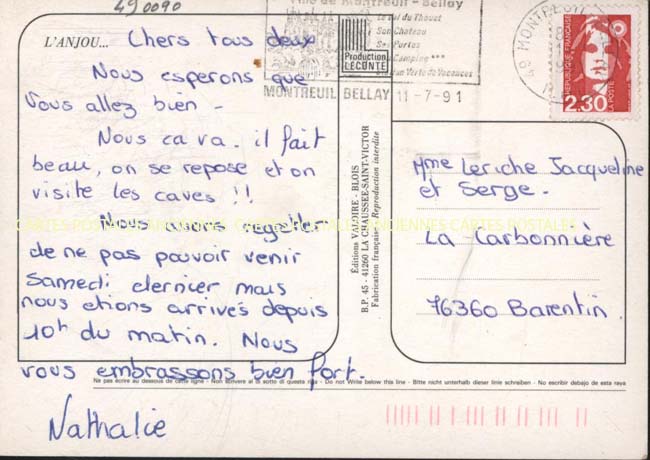 490090
Ville de Montreuil - Bellay
Le Val du Thouet
Son Château
Ses Portes
Son Camping ***
MONTREUIL BELLAY 11-7-91
49 MONTREUIL
REPUBLIQUE FRANÇAISE
LA POSTE
2.30
L'ANJOU...
Production
LECONTE
Chers tous deux
Nous esperons que
vous allez bien -
Nous ca va. il fait
beau, on se repose et on
visite les caves !!
Nous avons regetter
de ne pas pouvoir venir
Samedi dernier mais
nous etions arrivés depuis
10h du matin. Nous
vous embrassons bien fort.
Nathalie
CARTES POSTALES ANCIENNES CARTES POSTALES ANCIENNES CARTES POSTALES
Éditions VALOIRE - BLOIS
B.P. 45 - 41260 LA CHAUSSÉE-SAINT-VICTOR
Fabrication française - Reproduction interdite
Mme Leriche Jacqueline
et Serge.
La Carbonnière
76360 Barentin.
Ne pas écrire au dessous de cette ligne - Non scrivere al di sotto di questa riga - Do not Write below this line - Bitte nicht unterhalb dieser linie schreiben - No escribir debajo de esta raya